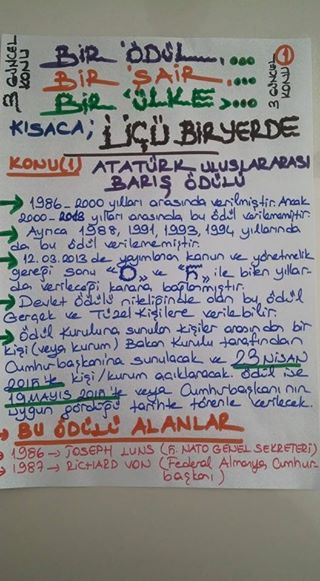 3 GÜNCEL KONU
BİR ÖDÜL....
BİR ŞAİR....
BİR ÜLKE....
3 GÜNCEL KONU 1
KISACA; ÜÇÜ BİR YERDE
KONU(1) ATATÜRK ULUSLARARASI
BARIŞ ÖDÜLÜ
→ 1986-2000 yılları arasında verilmiştir. Ancak
2000-2013 yılları arasında bu ödül verilememiştir.
→ Ayrıca 1988, 1991, 1993, 1994 yıllarında
da bu ödül verilememiştir.
→ 12.03.2013 de yayımlanan kanun ve yönetmelik
gereği sonu "0" ve "5" ile biten yıllar-
da verileceği karara bağlanmıştır.
→ Devlet ödülü niteliğinde olan bu ödül
Gerçek ve Tüzel Kişilere verilebilir.
→ Ödül Kuruluna sunulan kişiler arasından bir
kişi (veya kurum) Bakan Kurulu tarafından
Cumhurbaşkanına sunulacak ve 23 NİSAN
2015'te kişi/kurum açıklanacak. Ödül ise
19 MAYIS 2015'te veya Cumhurbaşkanı nın
uygun gördüğü tarihte törenle verilecek.
→ BU ÖDÜLÜ ALANLAR
→ 1986 → JOSEPH LUNS (5. NATO GENEL SEKRETERİ)
→ 1987 → RICHARD VON (Federal Almanya Cumhur-
başkanı)